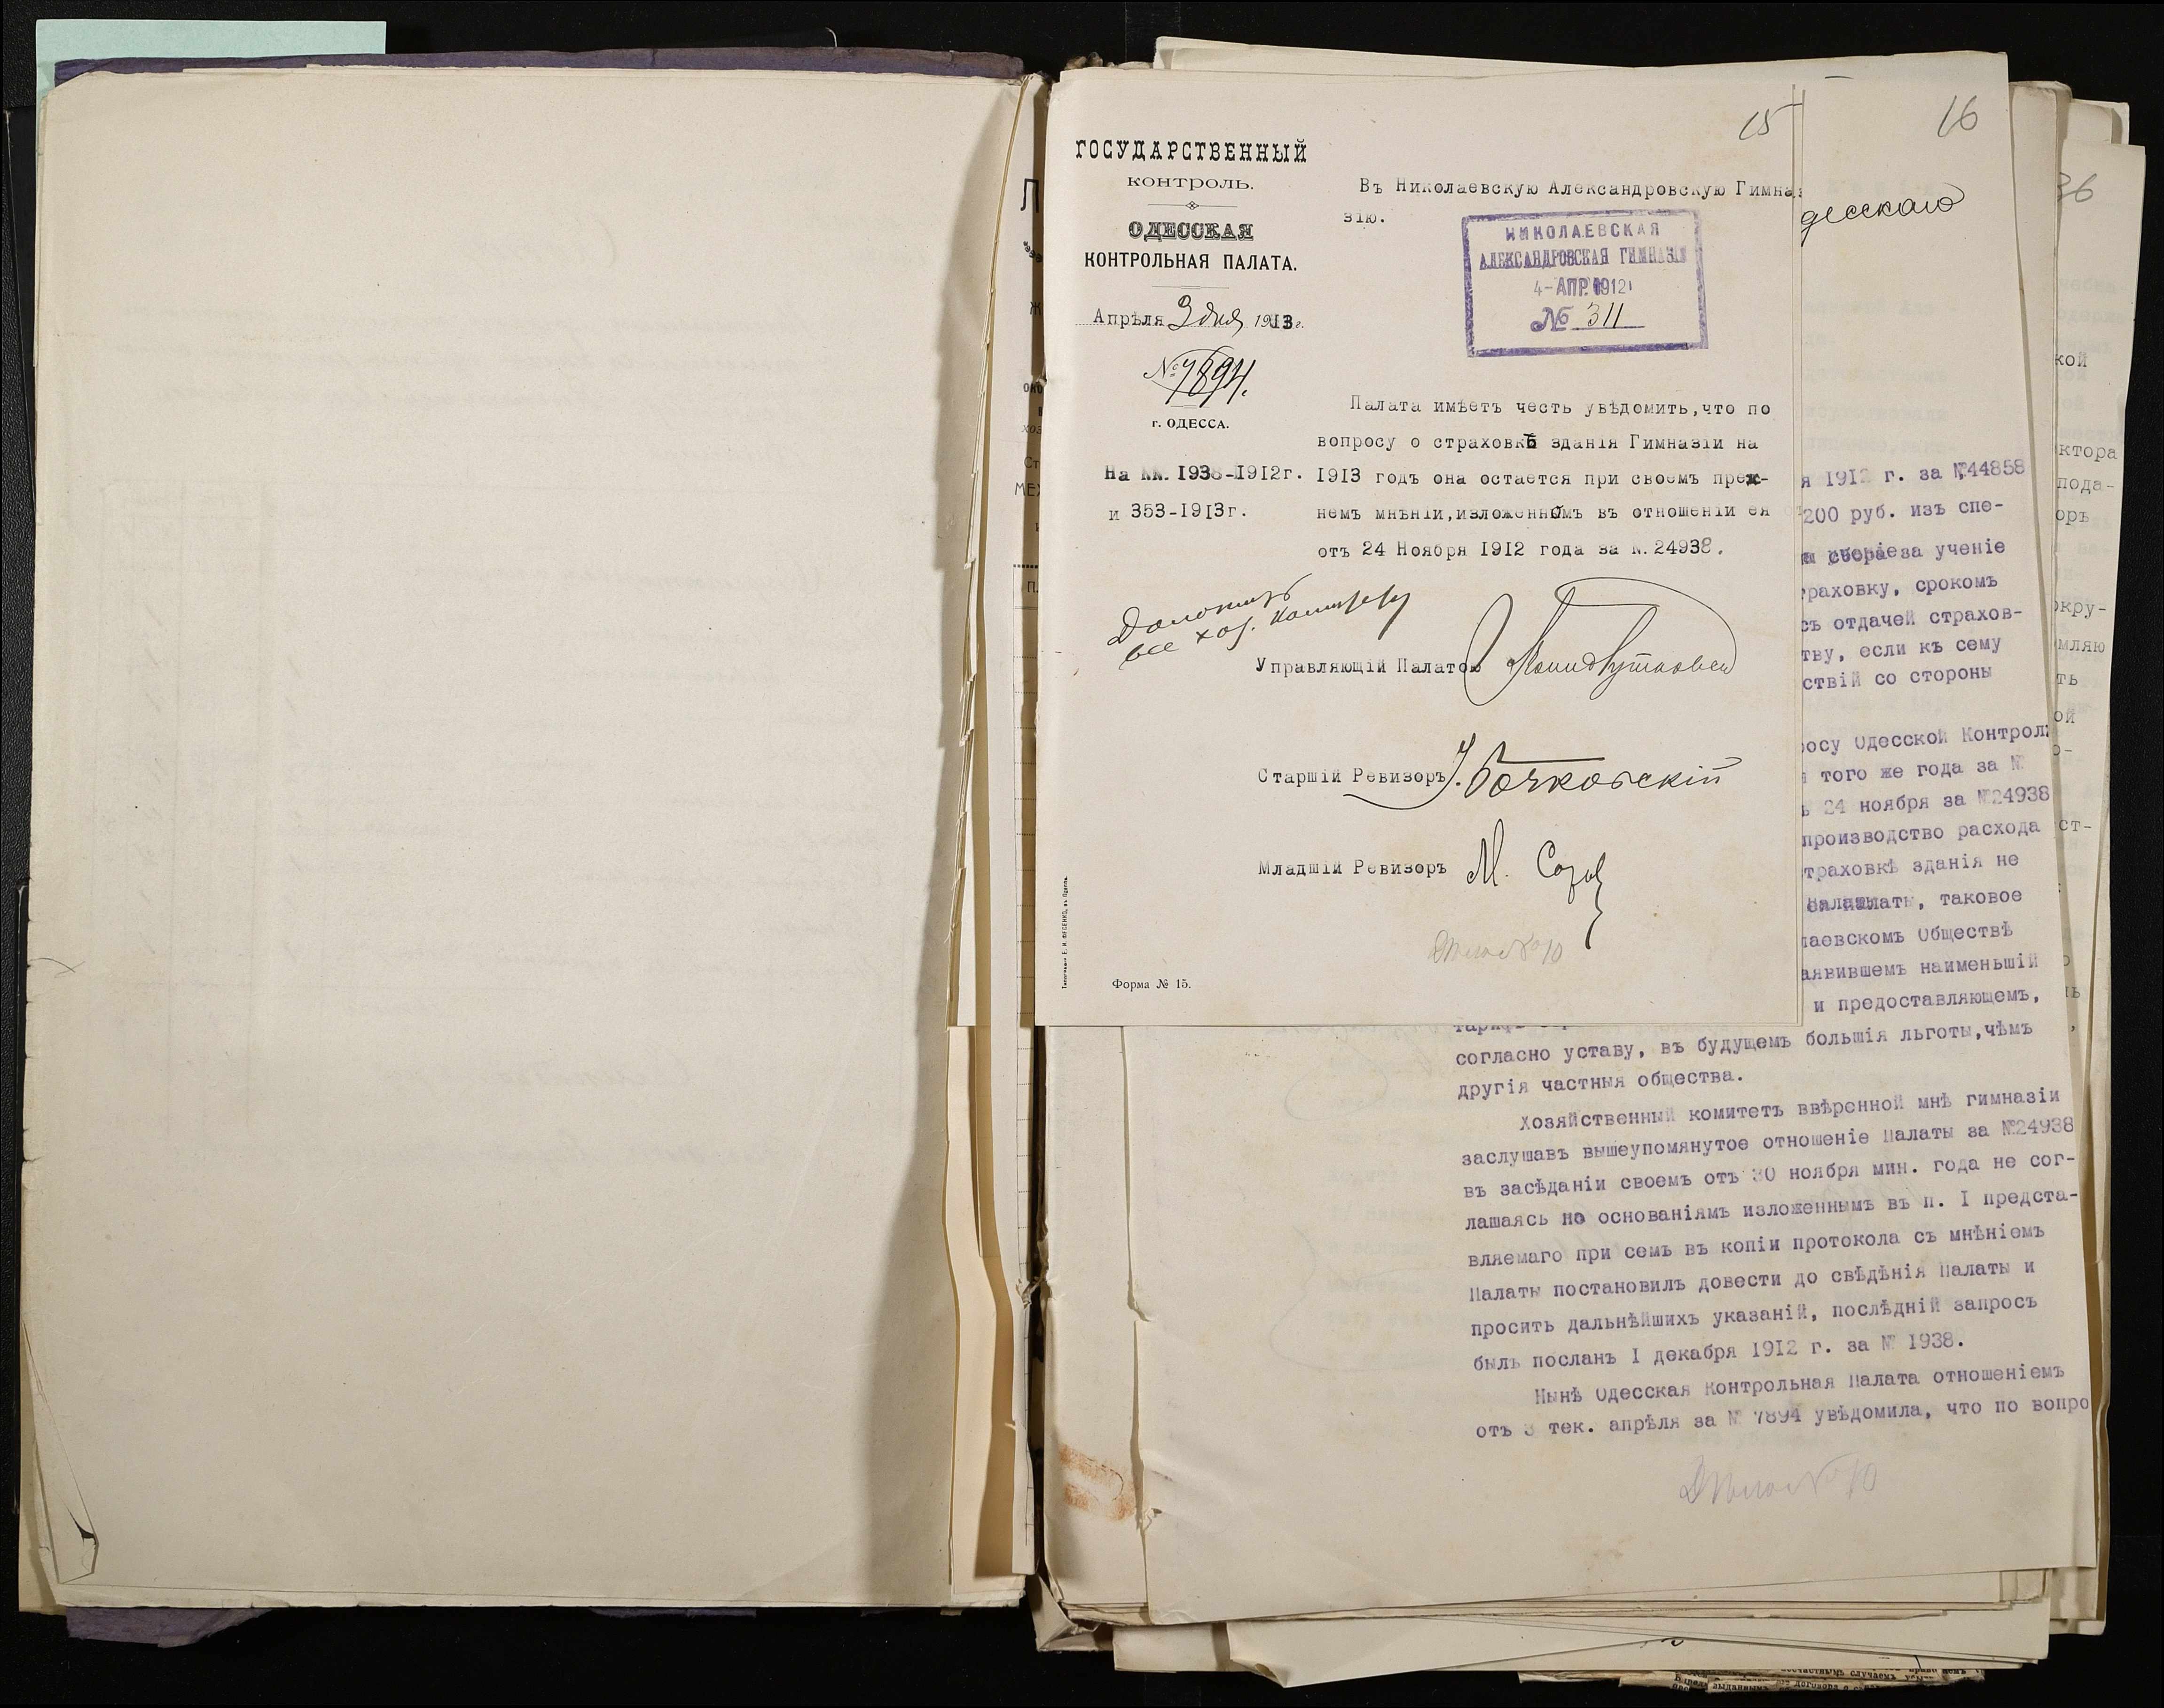 15
ГОСУДАРСТВЕННЫЙ
КОНТРОЛЬ.
ОДЕССКАЯ
КОНТРОЛЬНАЯ ПАЛАТА.
Апрѣля 3 дня 1913 г.
№ 7894.
г. ОДЕССА.
На №№. 1938-1912г.
и 353-1913г.
Въ Николаевскую Александровскую Гимна
зію.
НИКОЛАЕВСКАЯ
АЛЕКСАНДРОВСКАЯ ГИМНАЗІЯ
4-АПР. 1912
№ 311
Палата имѣетъ честь увѣдомить,что по
вопросу о страховкѣ зданія Гимназіи на
1913 годъ она остается при своемъ преж-
немъ мнѣніи,изложенномъ въ отношеніи ея
отъ 24 Ноября 1912 года за №.24938.
Доложить
хоз. Комитету
Управляющій Палатою
Старшій Ревизоръ Бочковскій
Младшій Ревизоръ М.
Дѣло № 10
Форма № 15.
16
десскаго
я 1912 г. за №44858
200 руб. изъ спе-
сбора за ученіе
траховку, срокомъ
съ отдачей страхов-
тву, если къ сему
ствій со стороны
росу Одесской Контрол
того же года за №
24 ноября за №24938
производство расхода
траховкѣ зданія не
Палаты, таковое
лаевскомъ Обществѣ
аявившемъ наименьшій
и предоставляющемъ,
тарифъ
согласно уставу, въ будущемъ большія льготы,чѣмъ
другія частныя общества.
Хозяйственный комитетъ ввѣренной мнѣ гимназіи
заслушавъ вышеупомянутое отношеніе Палаты за №24938
въ засѣданіи своемъ отъ 30 ноября мин. года не сог-
лашаясь по основаніямъ изложеннымъ въ п. I предста-
вляемаго при семъ въ копіи протокола съ мнѣніемъ
Палаты постановилъ довести до свѣдѣнія Палаты и
просить дальнѣйшихъ указаній, послѣдній запросъ
былъ посланъ I декабря 1912 г. за № 1938.
Нынѣ Одесская Контрольная Палата отношеніемъ
отъ 3 тек. апрѣля за № 7894 увѣдомила, что по вопро
Дѣло № 10
36
кой
ктора
пода-
оръ
окру-
мляю
ть
ой
ст-